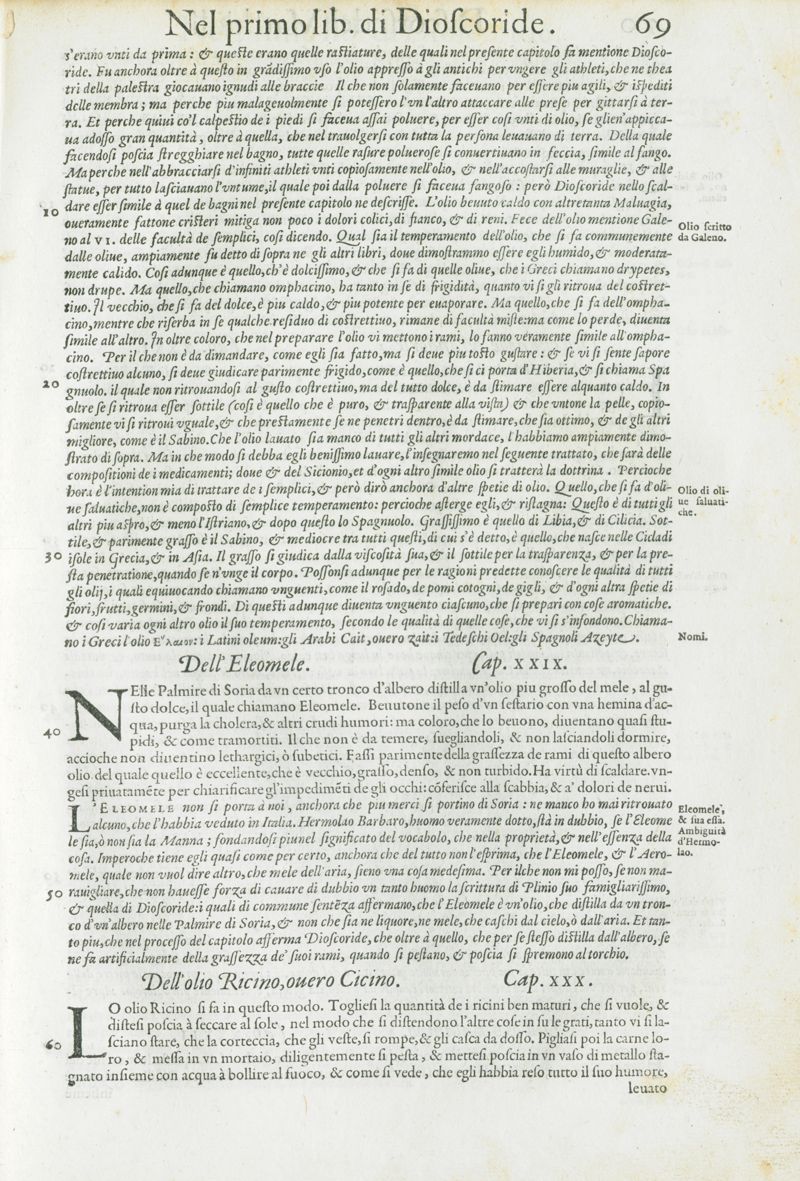 Nel primo lib. di Dioſcoride. 69
s'erano vnti da prima : & queſte erano quelle raſtiature, delle quali nel preſente capitolo fa mentione Dioſco-
ride. Fu anchora oltre à queſto in grãdiſſimo vſo l'olio appreſſo à gli antichi per vngere gli athleti, che ne thea
tri della paleſtra giocauano ignudi alle braccie Il che non ſolamente faceuano per eſſere piu agili, & iſpediti
delle membra ; ma perche piu malageuolmente ſi poteſſero l'vn l'altro attaccare alle preſe per gittarſi à ter-
ra. Et perche quiui co'l calpeſtio de i piedi ſi faceua aſſai poluere, per eſſer coſi vnti di olio, ſe glien'appicca-
ua adoſſo gran quantità, oltre à quella, che nel trauolgerſi con tutta la perſona leuauano di terra. Della quale
facendoſi poſcia ſtregghiare nel bagno, tutte quelle raſure polueroſe ſi conuertiuano in feccia, ſimile al fango.
Ma perche nell'abbracciarſi d'infiniti athleti vnti copioſamente nell'olio, & nell'accoſtarſi alle muraglie, & alle
ſtatue, per tutto laſciauano l'vntume, il quale poi dalla poluere ſi faceua fangoſo : però Dioſcoride nello ſcal-
10 dare eſſer ſimile à quel de bagni nel preſente capitolo ne deſcriſſe. L'olio beuuto caldo con altretanta Maluagia,
oueramente fattone criſteri mitiga non poco i dolori colici, di fianco, & di reni. Fece dell'olio mentione Gale-
Olio ſcritto
no al VI. delle facultà de ſemplici, coſi dicendo. Qual ſia il temperamento dell'olio, che ſi fa communemente
da Galeno.
dalle oliue, ampiamente fu detto di ſopra ne gli altri libri, doue dimoſtrammo eſſere egli humido, & moderata-
mente calido. Coſi adunque è quello, ch'è dolciſſimo, & che ſi fa di quelle oliue, che i Greci chiamano drypetes,
non drupe. Ma quello, che chiamano omphacino, ha tanto in ſe di frigidità, quanto vi ſi gli ritroua del coſtret-
tiuo. Il vecchio, che ſi fa del dolce, è piu caldo, & piu potente per euaporare. Ma quello, che ſi fa dell'ompha-
cino, mentre che riſerba in ſe qualche reſiduo di coſtrettiuo, rimane di facultà miſte: ma come lo perde, diuenta
ſimile all'altro. In oltre coloro, che nel preparare l'olio vi mettono i rami, lo fanno veramente ſimile all'ompha-
cino. Per il che non è da dimandare, come egli ſia fatto, ma ſi deue piu toſto guſtare : & ſe vi ſi ſente ſapore
20 coſtrettiuo alcuno, ſi deue giudicare parimente frigido, come è quello, che ſi ci porta d'Hiberia, & ſi chiama Spa
gnuolo. il quale non ritrouandoſi al guſto coſtrettiuo, ma del tutto dolce, è da ſtimare eſſere alquanto caldo. In
oltre ſe ſi ritroua eſſer ſottile (coſi è quello che è puro, & traſparente alla viſta) & che vntone la pelle, copio-
ſamente vi ſi ritroui vguale, & che preſtamente ſe ne penetri dentro, è da ſtimare, che ſia ottimo, & de gli altri
migliore, come è il Sabino. Che l'olio lauato ſia manco di tutti gli altri mordace, l'habbiamo ampiamente dimo-
ſtrato di ſopra. Ma in che modo ſi debba egli beniſſimo lauare, l'inſegnaremo nel ſeguente trattato, che ſarà delle
compoſitioni de i medicamenti; doue & del Sicionio, et d'ogni altro ſimile olio ſi tratterà la dottrina . Percioche
hora è l'intention mia di trattare de i ſemplici, & però dirò anchora d'altre ſpetie di olio. Quello, che ſi fa d'oli-
Olio di oli-
ue ſaluatiche, non è compoſto di ſemplice temperamento: percioche aſterge egli, & riſtagna: Queſto è di tutti gli
ue ſaluati-
altri piu aſpro, & meno l'Iſtriano, & dopo queſto lo Spagnuolo. Graſſiſſimo è quello di Libia, & di Cilicia. Sot-
che.
tile, & parimente graſſo è il Sabino, & mediocre tra tutti queſti, di cui s'è detto, è quello, che naſce nelle Cicladi
30 iſole in Grecia, & in Aſia. Il graſſo ſi giudica dalla viſcoſità ſua, & il ſottile per la traſparenza, & per la pre-
ſta penetratione, quando ſe n'vnge il corpo. Poſſonſi adunque per le ragioni predette conoſcere le qualità di tutti
gli olij, i quali equiuocando chiamano vnguenti, come il roſado, de pomi cotogni, de gigli, & d'ogni altra ſpetie di
fiori, frutti, germini, & frondi. Di queſti adunque diuenta vnguento ciaſcuno, che ſi prepari con coſe aromatiche.
& coſi varia ogni altro olio il ſuo temperamento, ſecondo le qualità di quelle coſe, che vi ſi s'infondono. Chiama-
no i Greci l'olio Ἔλαιον: i Latini oleum: gli Arabi Cait, ouero zait: i Tedeſchi Oel: gli Spagnoli Azeyte.
Nomi.
Dell'Eleomele. Cap. XXIX.
NElle Palmire di Soria da vn certo tronco d'albero diſtilla vn'olio piu groſſo del mele, al gu-
ſto dolce, il quale chiamano Eleomele. Beuutone il peſo d'vn ſeſtario con vna hemina d'ac-
qua, purga la cholera, & altri crudi humori: ma coloro, che lo beuono, diuentano quaſi ſtu-
40 pidi, & come tramortiti. Il che non è da temere, ſuegliandoli, & non laſciandoli dormire,
accioche non diuentino lethargici, ò ſubetici. Faſſi parimente della graſſezza de rami di queſto albero
olio del quale quello è eccellente, che è vecchio, graſſo, denſo, & non turbido. Ha virtù di ſcaldare. vn-
geſi priuataméte per chiarificare gl'impediméti de gli occhi: cóferiſce alla ſcabbia, & a' dolori de nerui.
L'ELEOMELE non ſi porta à noi, anchora che piu merci ſi portino di Soria : ne manco ho mai ritrouato
Eleomele,
alcuno, che l'habbia veduto in Italia. Hermolao Barbaro, huomo veramente dotto, ſtà in dubbio, ſe l'Eleome
& ſua eſſa.
le ſia, ò non ſia la Manna ; fondandoſi piu nel ſignificato del vocabolo, che nella proprietà, & nell'eſſenza della
Ambiguità
d'Hermo-
coſa. Imperoche tiene egli quaſi come per certo, anchora che del tutto non l'eſprima, che l'Eleomele, & l'Aero-
lao.
mele, quale non vuol dire altro, che mele dell'aria, ſieno vna coſa medeſima. Per ilche non mi poſſo, ſe non ma-
50 rauigliare, che non haueſſe forza di cauare di dubbio vn tanto huomo la ſcrittura di Plinio ſuo famigliariſſimo,
& quella di Dioſcoride: i quali di commune ſentẽza affermano, che l'Eleomele è vn'olio, che diſtilla da vn tron-
co d'vn'albero nelle Palmire di Soria, & non che ſia ne liquore, ne mele, che caſchi dal cielo, ò dall'aria. Et tan-
to piu, che nel proceſſo del capitolo afferma Dioſcoride, che oltre à quello, che per ſe ſteſſo diſtilla dall'albero, ſe
ne fa artificialmente della graſſezza de' ſuoi rami, quando ſi peſtano, & poſcia ſi ſpremono al torchio.
Dell'olio Ricino, ouero Cicino. Cap. XXX.
LO olio Ricino ſi fa in queſto modo. Toglieſi la quantità de i ricini ben maturi, che ſi vuole, &
diſteſi poſcia à ſeccare al ſole, nel modo che ſi diſtendono l'altre coſe in ſu le grati, tanto vi ſi la-
ſciano ſtare, che la corteccia, che gli veſte, ſi rompe, & gli caſca da doſſo. Pigliaſi poi la carne lo-
60 ro, & meſſa in vn mortaio, diligentemente ſi peſta, & metteſi poſcia in vn vaſo di metallo ſta-
gnato inſieme con acqua à bollire al fuoco, & come ſi vede, che egli habbia reſo tutto il ſuo humore,
leuato